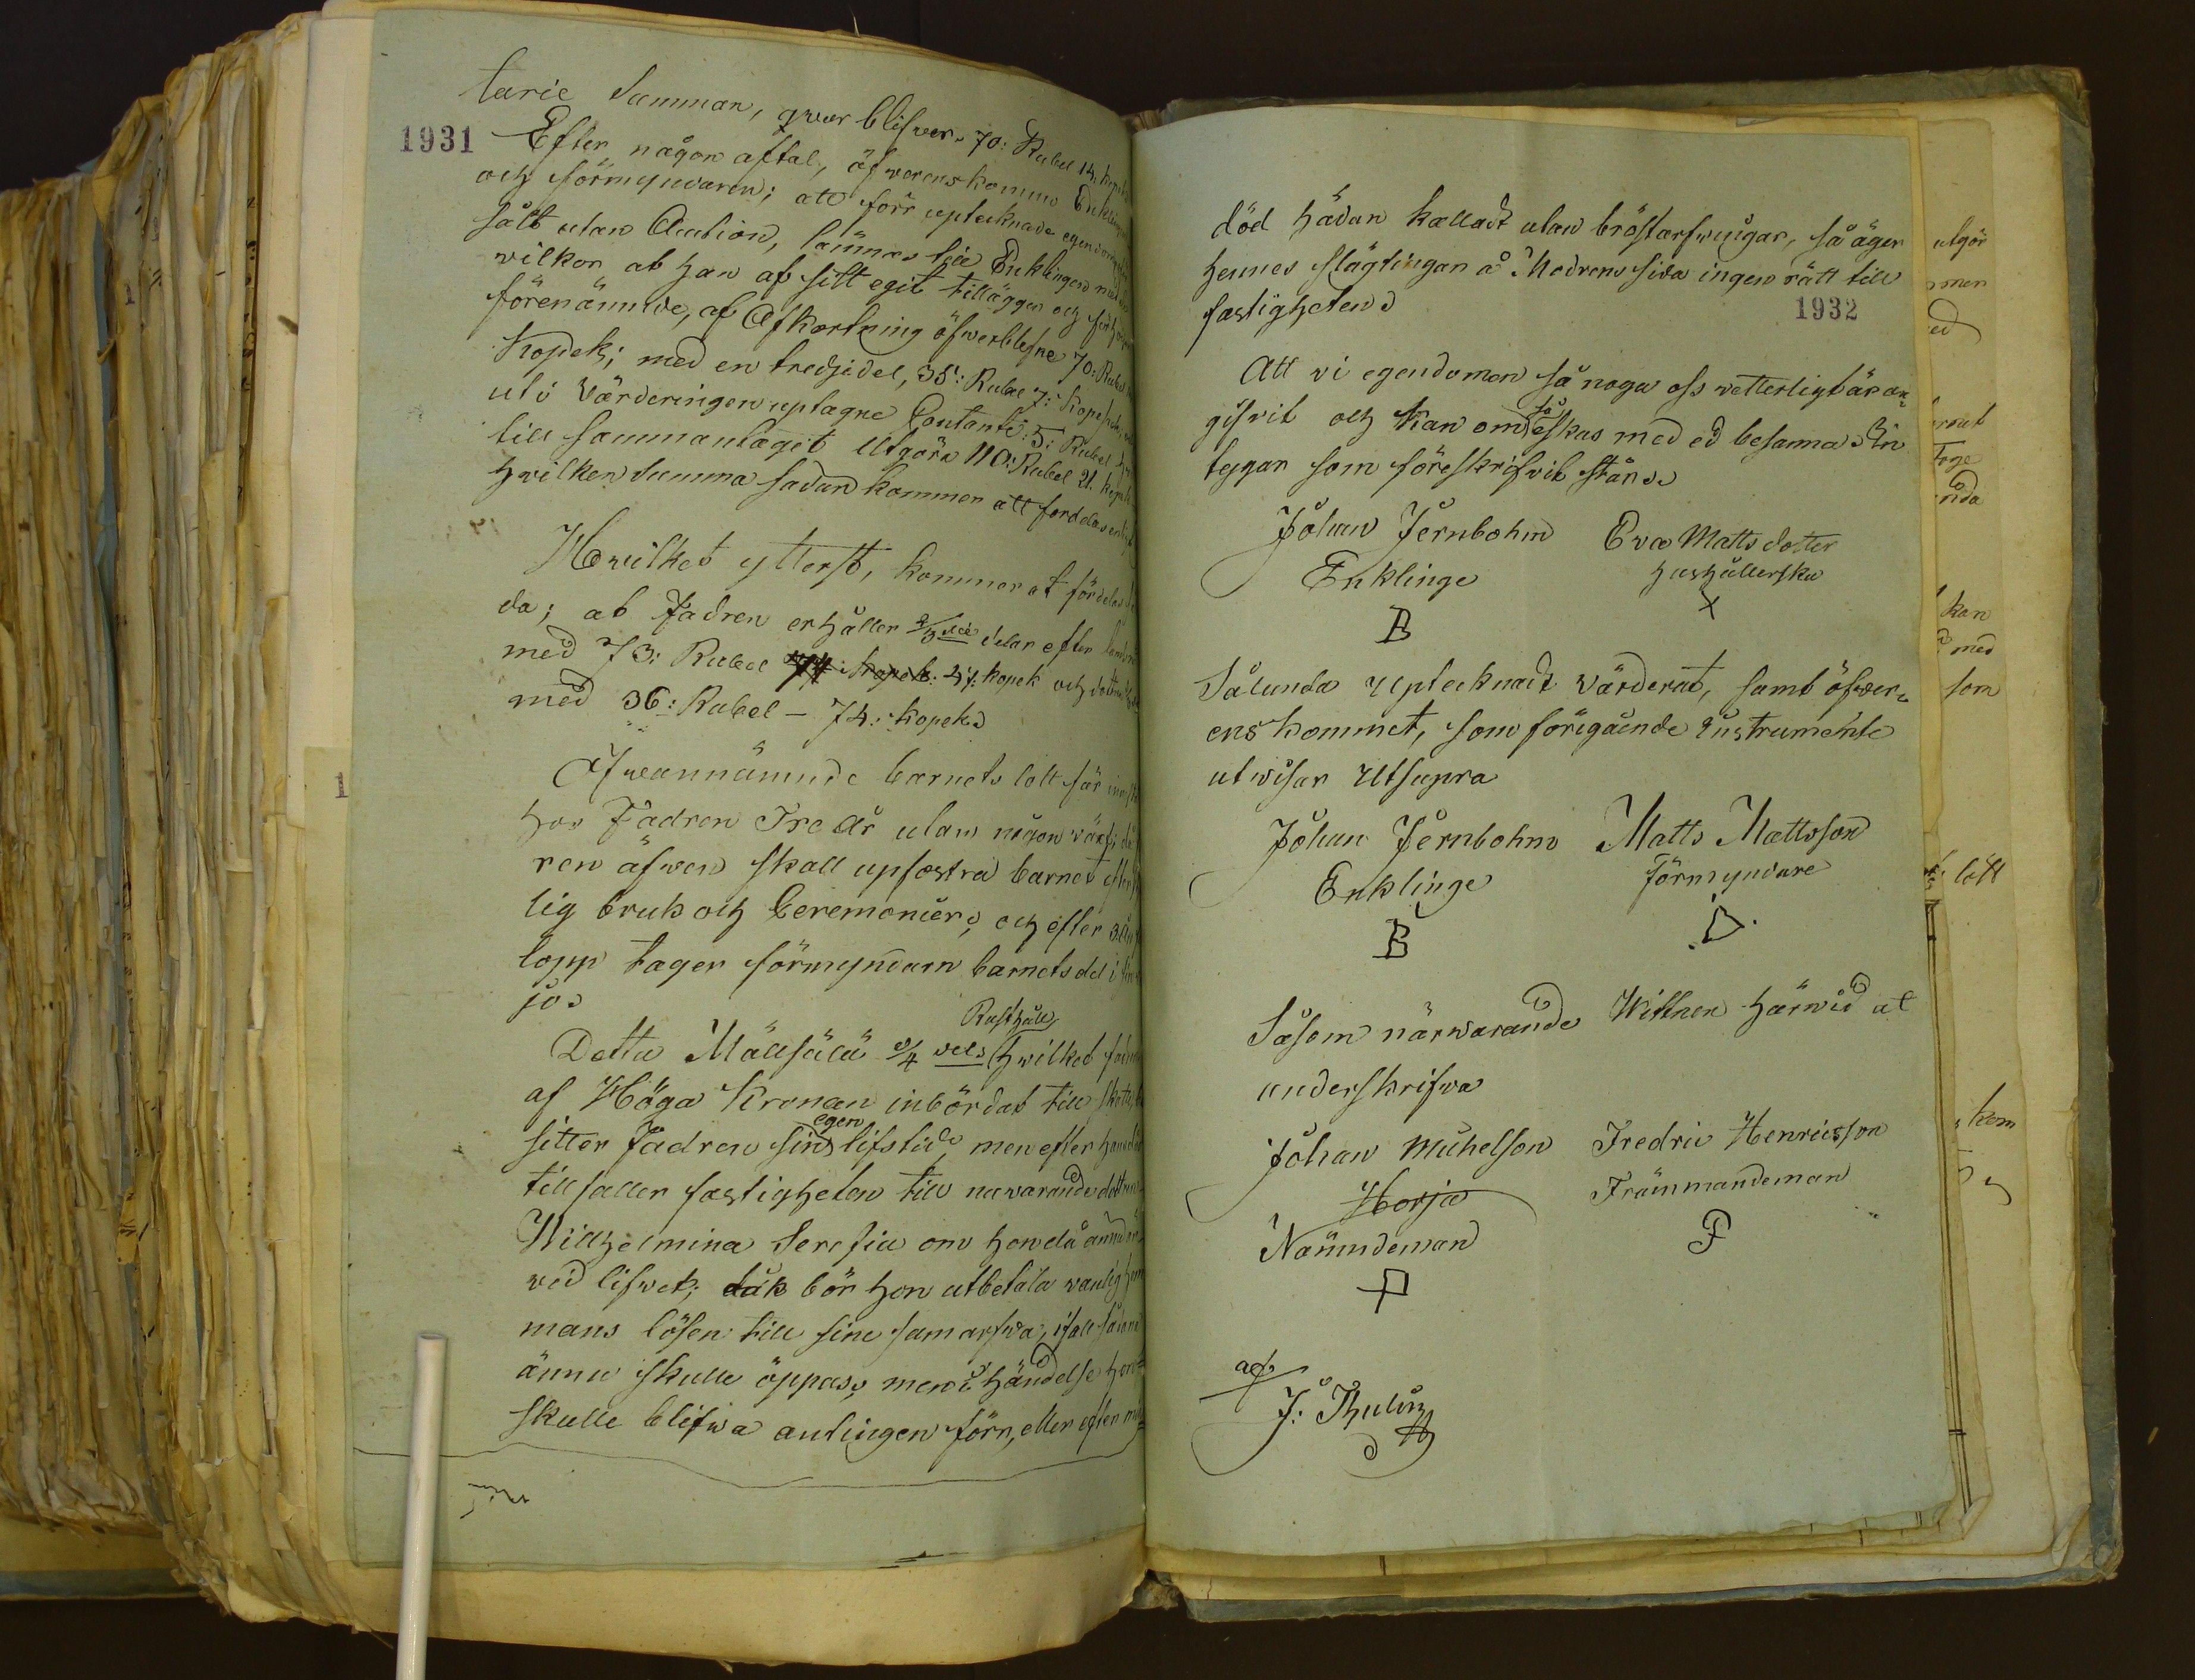 tarie Summan, qwar blifver. 70: Rubel 14. kopek
1931
Efter någon aftal, öfwerenskommo Enklingen
och förmyndaren; att förr uptecknade egendom
sålt utan Auction, lämnas till Enklingen med
wilkor at han af sitt egit tillägger och
förenämnde, af Afkortning öfwerblefne 70: Rubel
Kopek; med en tredjedel, 35: Rubel 7: kopek
uti Värderingen uptagne Contante: 5: Rubel
till sammanlagt Utgöra 110: Rubel 21. kopek
hwilken Summa sedan kommer att fördelas
Hwilket ytterst, kommer at fördelas
da; at Fadren erhåller 2/3 delar efter
med 73: Rubel 47: kopek och dottren
med 36: Rubel - 74: kopek
Ofwannämnde barnets lott får
hos Fadren Tre år utan någon
ren äfwen skall upfostra barnet efter
lig bruk och Ceremonier, och efter 3
lopp tager förmyndarn barnets del i
jo
Rusthåll,
Detta Mällsälä 3/4 dels hwilket
af Höga Kronan inbördat till
egen
sitter Fadren sin lifstid, men efter hans
tillfaller fastigheten till nuwarande dottren
Willhelmina Serafia om hon då ännu
wid lifwet; dåk bör hon utbetala
mans lösen till sine samarfwa, ifall sådane
ännu skulle öppas, men i händelse hon
skulle blifwa antingen förr, eller efter
död hädan kallad utan bröstarfwingar, så äger
hennes slägtingar å Modrens sida ingen rätt till
fastigheten
1932
Att vi egendomen så noga oss wetterligt är an-
så
gifvit och kan om eskas med ed besanna
tygar som föreskrifvit står
Johan Jernbohm Eva Mattsdotter
Enklinge hushållerska
B X
Sålunda Uptecknadt värderat, samt öfwer-
enskommet, som förigående instrumente
utwisar Utsupra
Johan Jernbohm Matts Mattsson
Enklinge Förmyndare
B
Såsom närwarande Wittnen härwid at
underskrifwa
Johan Michelson Fredric Henricsson
Horja Främmandeman
Nämndeman F
af
J: Thulin
utgör
men
ed
Toge
nda
kan
med
som
lått
kom